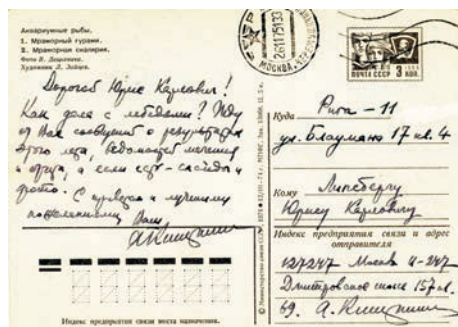 Аквариумные рыбы.
1. Мраморный гурами.
2. Мраморная скалярия.
Фото В. Дацкевича.
Художник Л. Зайцев.
Дорогой Юрис Карлович!
Как дела с лебедями? Жду
от Вас сообщений о результатах
этого лета, ведомостей мечения
и отчета, а если есть - слайды и
фото. С приветом и лучшими
пожеланиями, Ваш
МОСКВА
ПОЧТА СССР
3 КОП
Куда Рига - 11
ул. Блаумана 17 кв. 4
Кому Липсбергу
Юрису Карловичу
Индекс предприятия связи и адрес
отправителя
127247 Москва И-247
Дмитровское шоссе 157 кв.
69. А.
Индекс предприятия связи места назначения.
© Министерство связи СССР